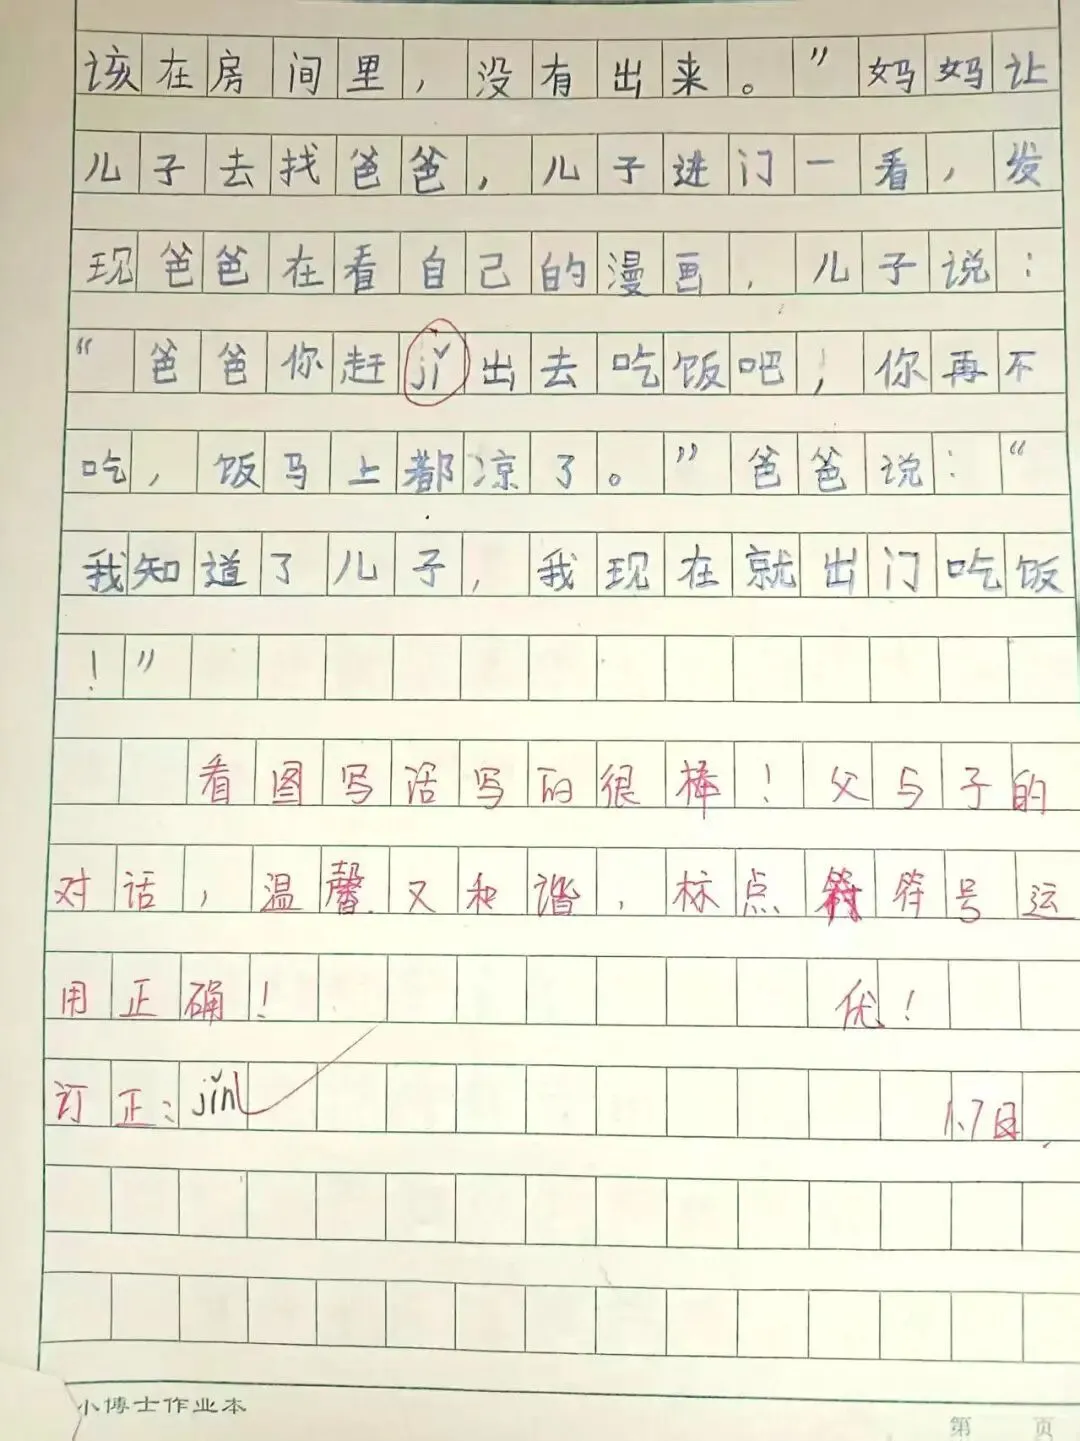 该在房间里，没有出来。”妈妈让
儿子去找爸爸，儿子进门一看，发
现爸爸在看自己的漫画，儿子说：
“爸爸你赶jǐ出去吃饭吧，你再不
吃，饭马上都凉了。”爸爸说：“
我知道了儿子，我现在就出门吃饭
！”
看图写话写的很棒！父与子的
对话，温馨又和谐，标点符号运
用正确！优！
订正：jǐn 1.7日
小博士作业本
第 页